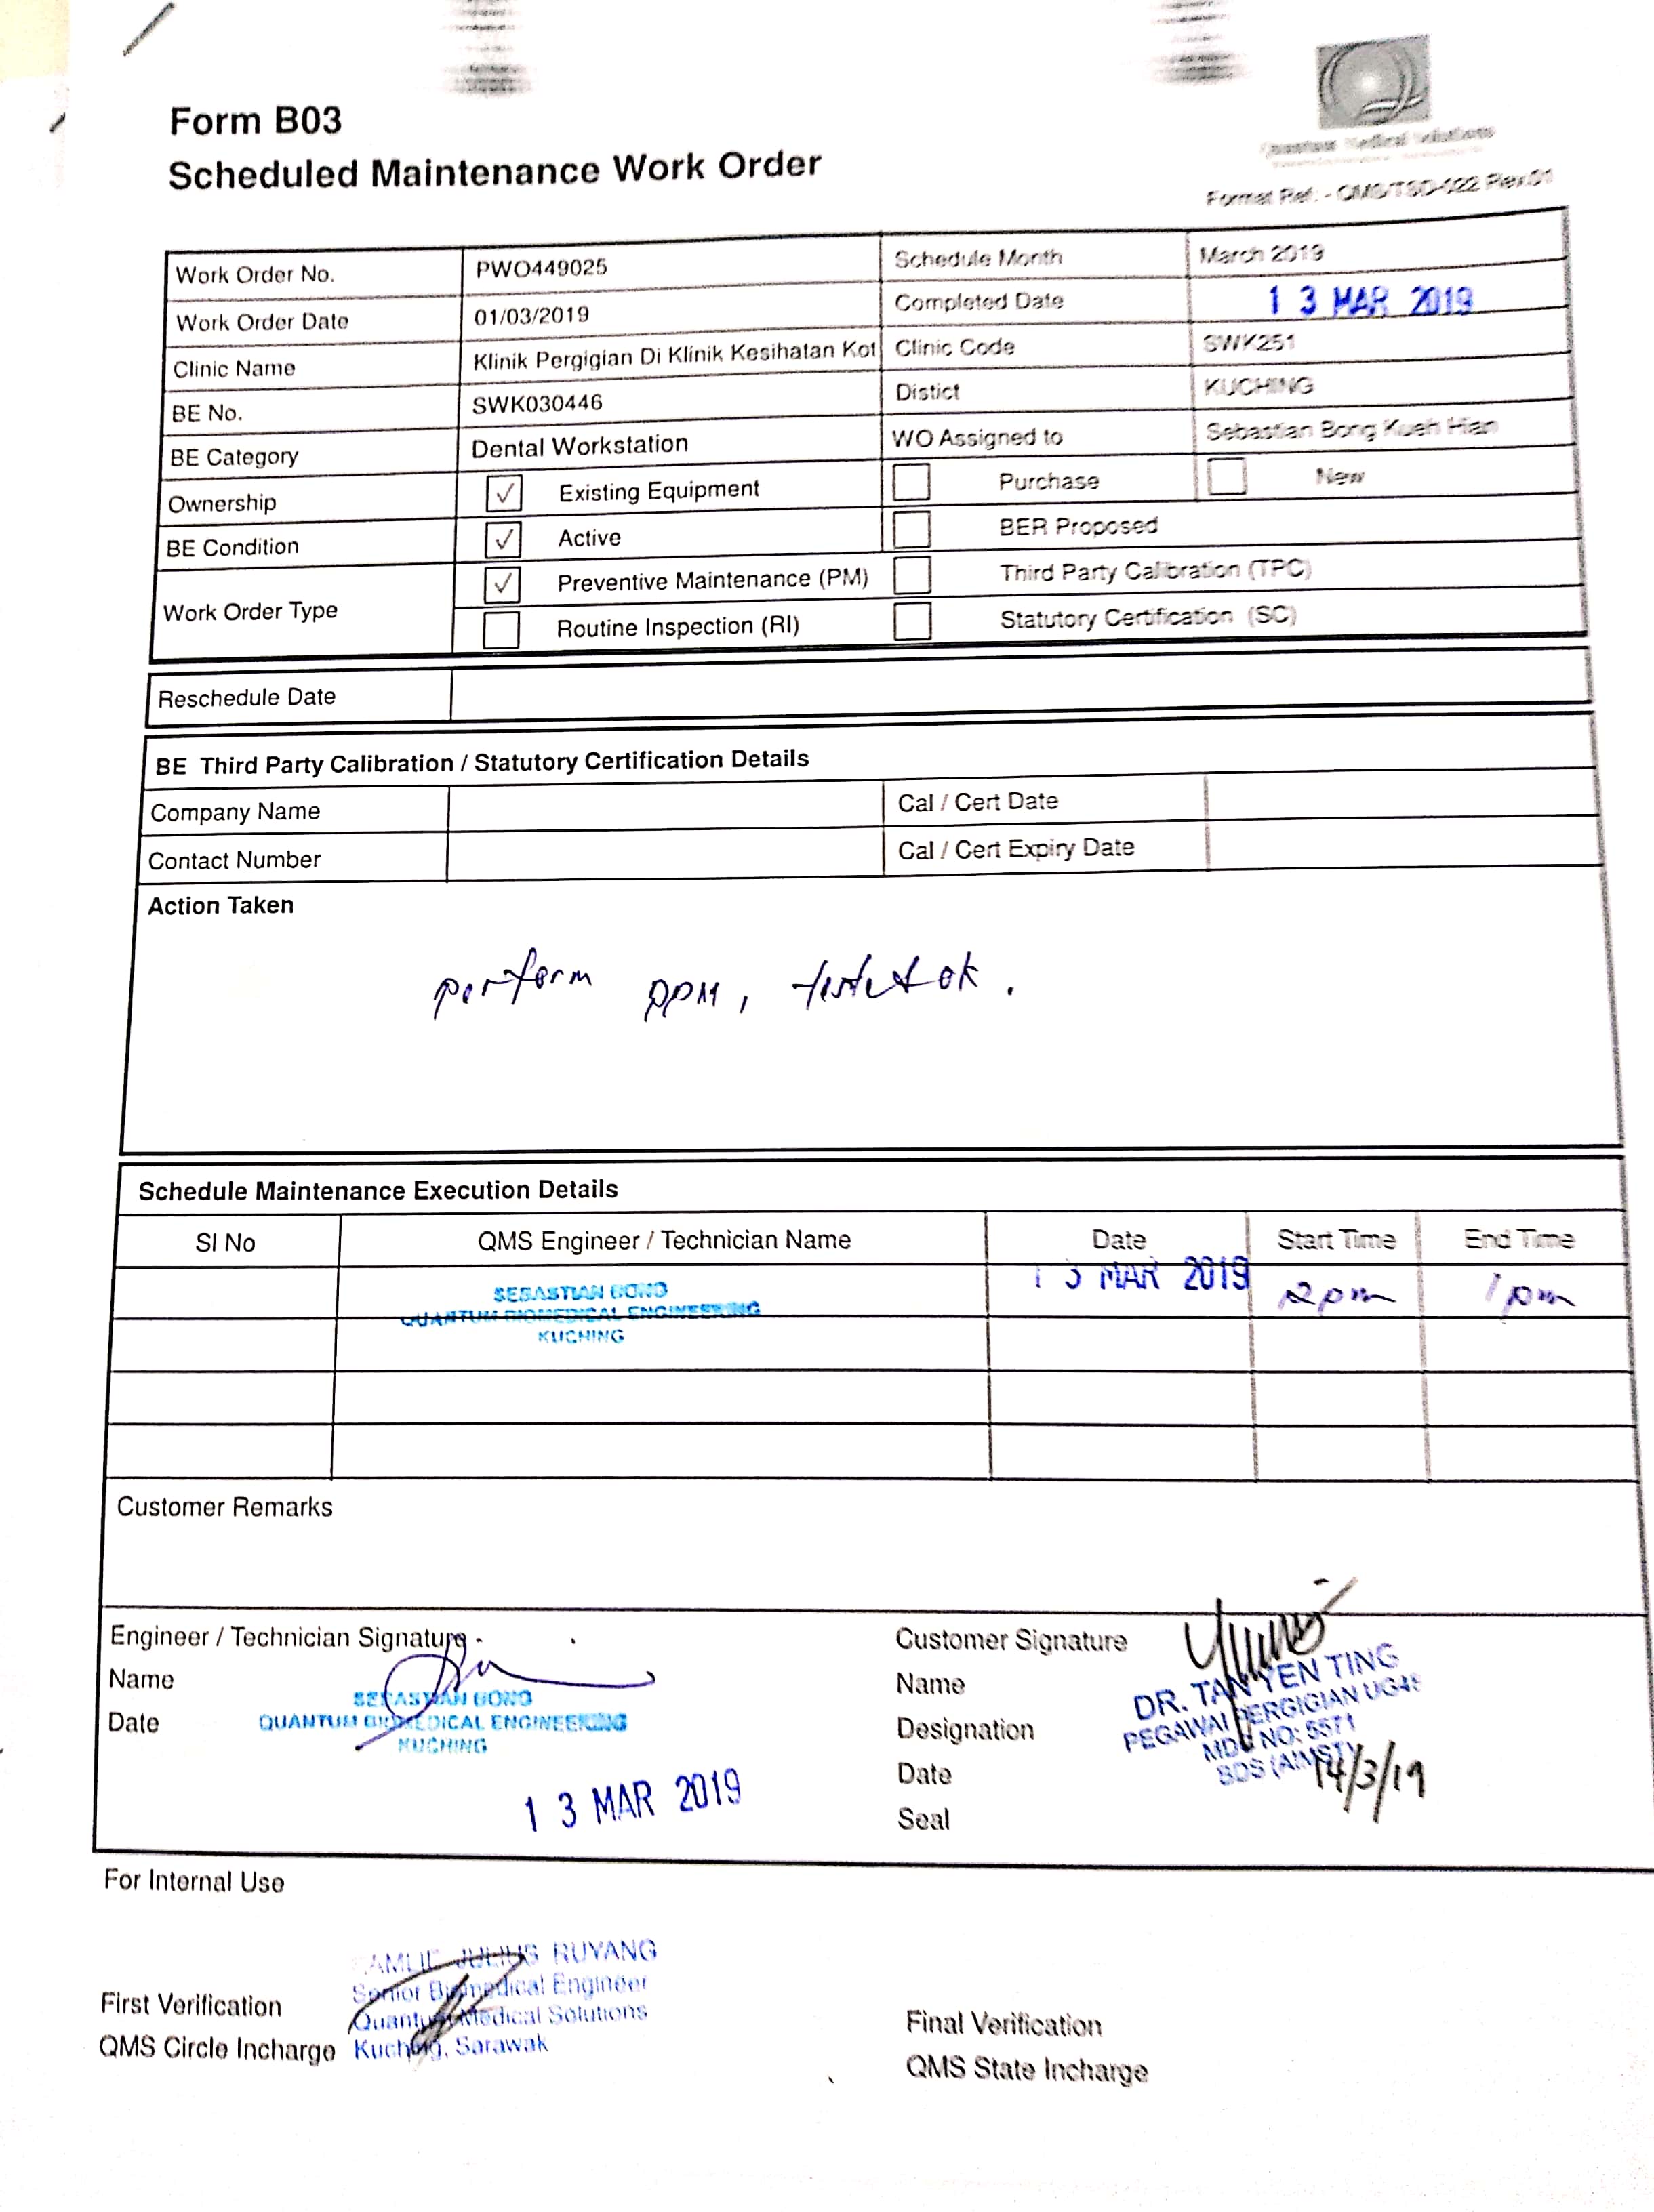 Form B03
Scheduled Maintenance Work Order
Quantum Medical Solutions
Format Ref. - QMS/TSD-022 Rev.01
Work Order No. PWO449025 Schedule Month March 2019
Work Order Date 01/03/2019 Completed Date 13 MAR 2019
Clinic Name Klinik Pergigian Di Klinik Kesihatan Kot Clinic Code SWK251
BE No. SWK030446 Distict KUCHING
BE Category Dental Workstation WO Assigned to Sebastian Bong Kueh Hian
Ownership ✓ Existing Equipment Purchase New
BE Condition ✓ Active BER Proposed
Work Order Type ✓ Preventive Maintenance (PM) Third Party Calibration (TPC)
Routine Inspection (RI) Statutory Certification (SC)
Reschedule Date
BE Third Party Calibration / Statutory Certification Details
Company Name Cal / Cert Date
Contact Number Cal / Cert Expiry Date
Action Taken
perform PPM, tested ok.
Schedule Maintenance Execution Details
SI No QMS Engineer / Technician Name Date Start Time End Time
SEBASTIAN BONG 13 MAR 2019 2pm 1pm
QUANTUM BIOMEDICAL ENGINEERING
KUCHING
Customer Remarks
Engineer / Technician Signature
Name
Date
SEBASTIAN BONG
QUANTUM BIOMEDICAL ENGINEERING
KUCHING
13 MAR 2019
Customer Signature
Name
Designation
Date
Seal
DR. TAN YEN TING
PEGAWAI PERGIGIAN UG48
MDC NO: 5571
BDS (AIMST)
14/3/19
For Internal Use
First Verification
QMS Circle Incharge
JULIUS RUYANG
Senior Biomedical Engineer
Quantum Medical Solutions
Kuching, Sarawak
Final Verification
QMS State Incharge